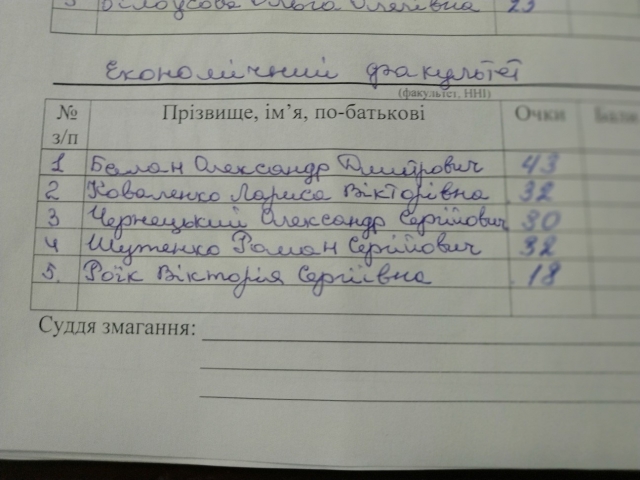 Білоусова Ольга Олегівна 23
Економічний факультет
(факультет, ННІ)
№ з/п Прізвище, ім’я, по-батькові Очки Бали
1 Балан Олександр Дмитрович 43
2 Коваленко Лариса Вікторівна 32
3 Чернецький Олександр Сергійович 30
4 Шутенко Роман Сергійович 32
5. Роїк Вікторія Сергіївна 18
Суддя змагання: